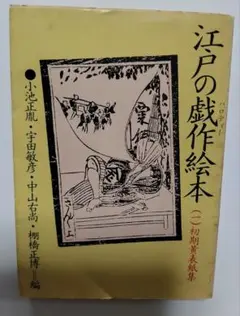 江戸の戯作絵本
(一)初期黄表紙集
●小池正胤・宇田敏彦・中山右尚・棚橋正博=編